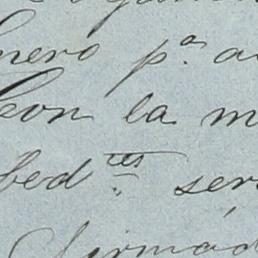 nero p.ª a
Con la m
bed.tes ser
firmad